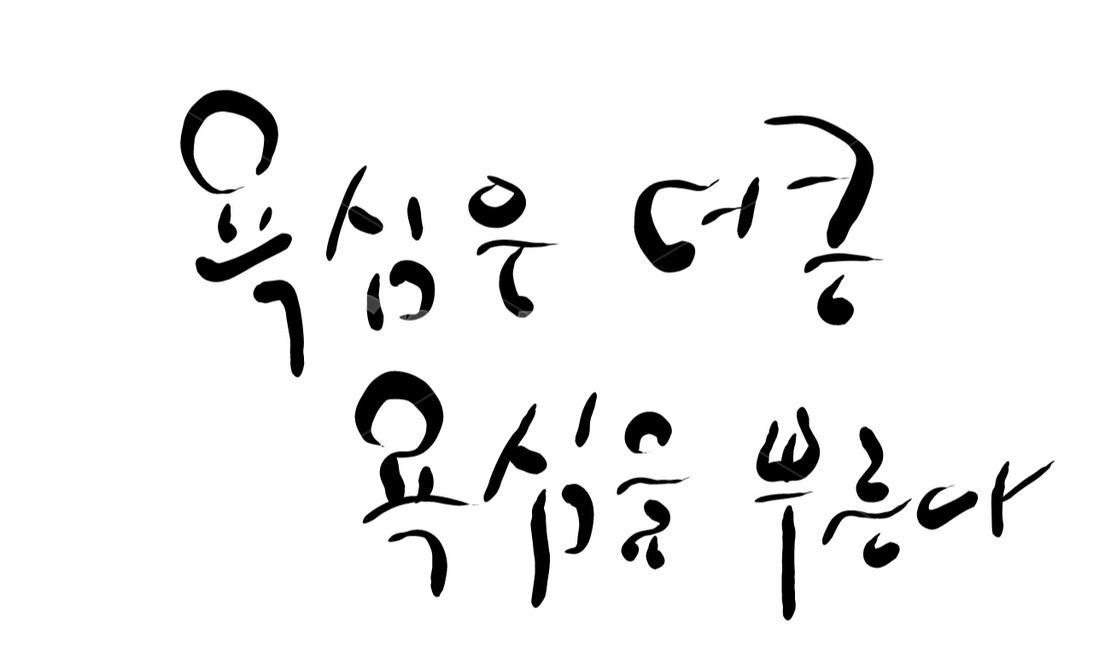 욕심은 더큰
욕심을 부른다